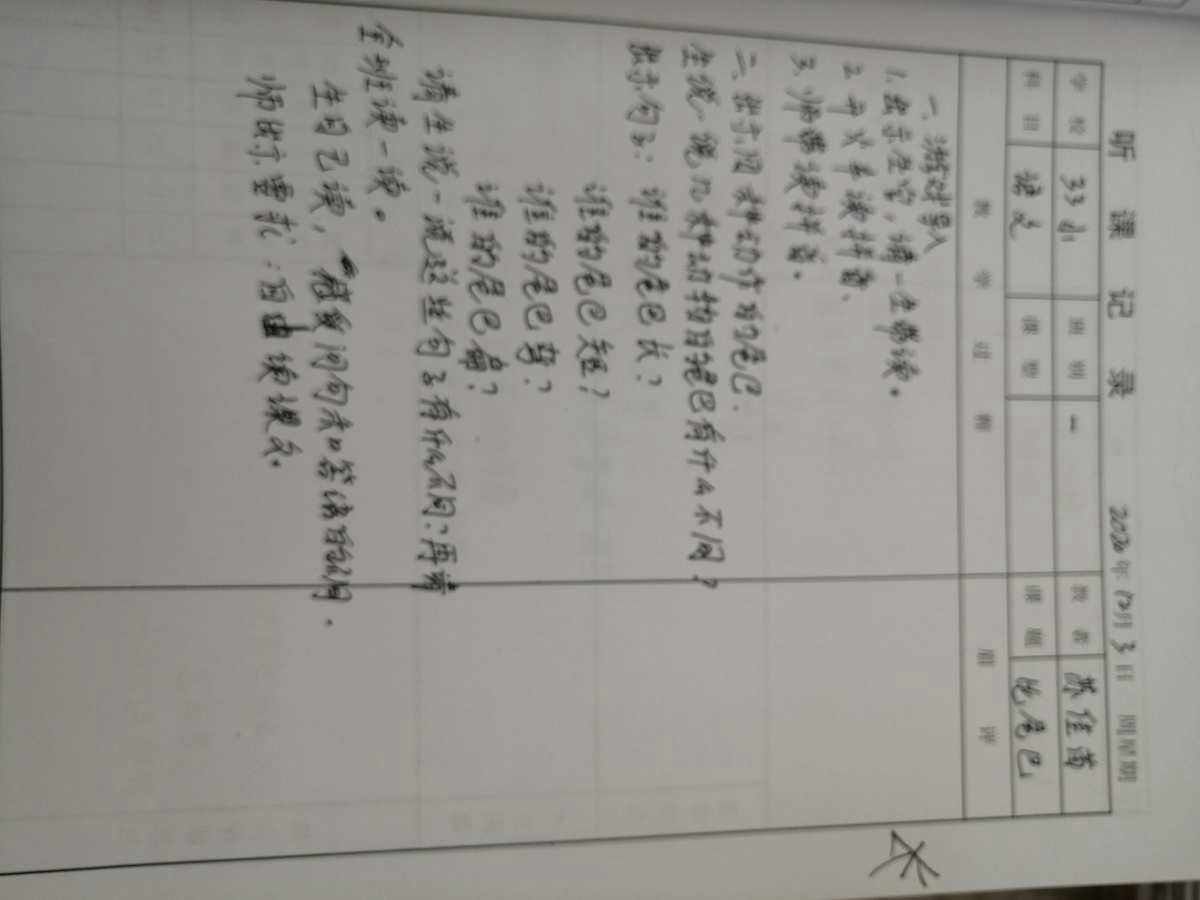 听课记录
2020年12月3日 周星期
学校 班别 一 教者 苏佳茵
科目 语文 课型 课题 比尾巴
教学过程 眉评
一、游戏导入
1. 出示生字,请一生带读。
2. 开火车读拼音、
3. 师带读拼音。
二、出示图 动作的尾巴.
生说一说几种动物的尾巴有什么不同?
出示句子: 谁的尾巴长?
谁的尾巴短?
谁的尾巴弯?
谁的尾巴扁?
请生说一说这些句子有什么不同?再请
全班读一读。
生自己读, 问句和答话的词.
师出示要求:自由读课文.